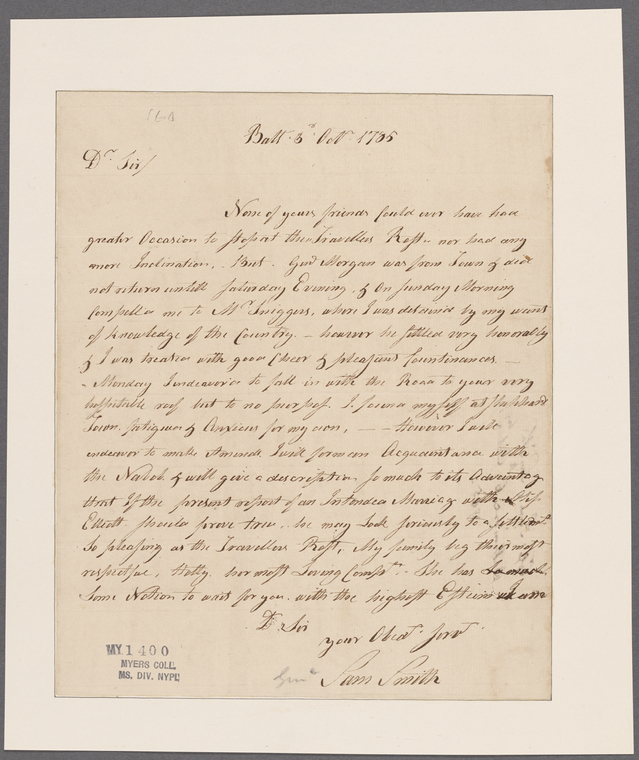 Balt. 3d. Octr. 1785
Dr. Sir/
None of yours friends Could ever have had
greater Occasion to stop at the Travellers Rest. nor had any
more Inclination, But. Genl. Morgan was from Town & did
not return untill Saturday Evening, & On Sunday Morning
Compelled me to Mr. Sniggers, where I was detained by my want
of Knowledge of the Country. — however he settled very honorably
& I was treated with good Cheer & pleasing Countinances —
- Monday I endeavored to fall in with the Road to your very
hospitable roof but to no purpose. I found myself at Shepherd
Town. fatigued & Anxious for my own, — — However I will
endeavor to make Amends I will form an Acquaintance with
the Nabob & will give a description So much to its Advantage
that If the present report of an Intended Marriage with Miss
Elliott should prove true. he may Look seriously to a Settlemt.
So pleasing as the Travellers Rest, My family beg their most
respectful, Hetty her most Loving Compts. — She has
Some Notion to wait for you. with the highest Esteem I am
Dr. Sir
your Obedt. Servt.
Genl. Sam Smith
MY.1400
MYERS COLL.
MS. DIV. NYPL